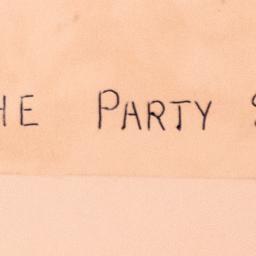 HE PARTY